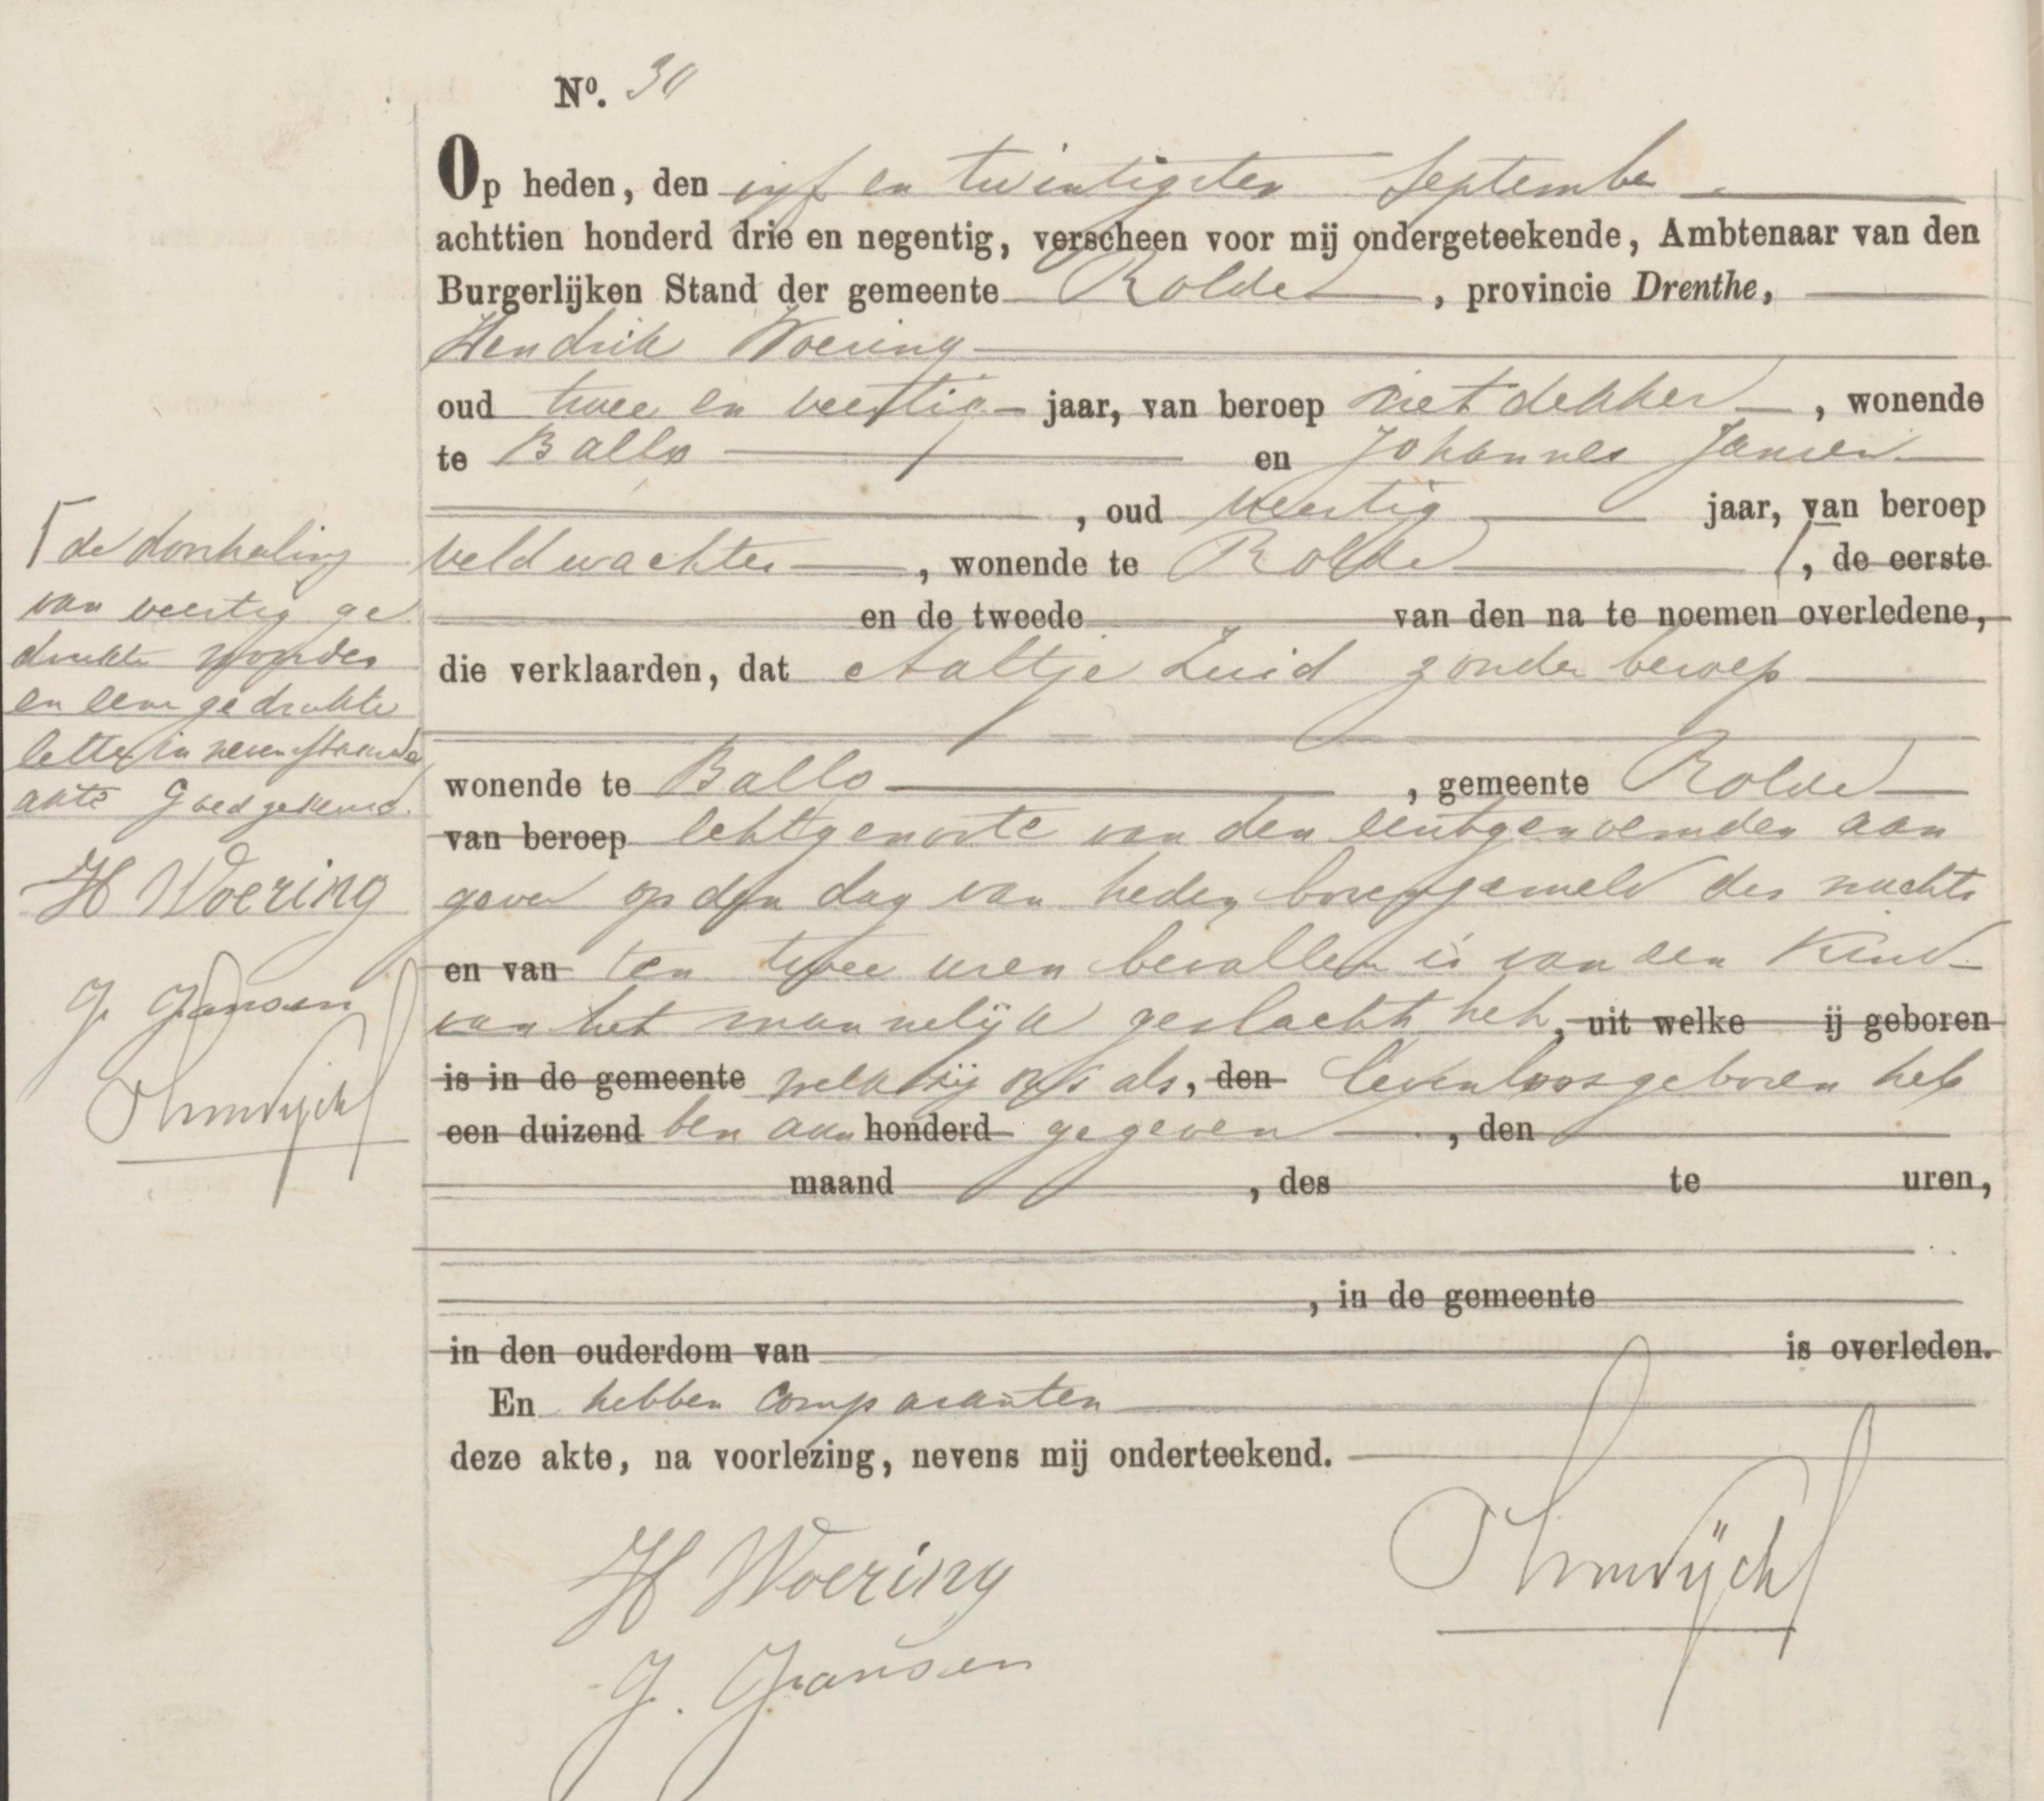 No. 30
Op heden, den vijf en twintigsten September
achttien honderd drie en negentig, verscheen voor mij ondergeteekende, Ambtenaar van den
Burgerlijken Stand der gemeente Rolde, provincie Drenthe,
Hendrik Woering
oud twee en veertig jaar, van beroep rietdekker, wonende
te Ballo en Johannes Jansen
, oud veertig jaar, van beroep
veldwachter, wonende te Rolde, de eerste
en de tweede van den na te noemen overledene,
die verklaarden, dat Aaltje Zuid zonder beroep
wonende te Ballo, gemeente Rolde
van beroep echtgenoote van den eerstgenoemden aan
gever op den dag van heden bovengemeld des nachts
en van ten twee uren bevallen is van een Kind
van het mannelijk geslacht het, uit welke ij geboren
is in de gemeente welk zij als, den levenloosgeboren heb
een duizend ben aan honderd gegeven, den
maand , des te uren,
, in de gemeente
in den ouderdom van is overleden.
En hebben comparanten
deze akte, na voorlezing, nevens mij onderteekend.
H Woering
J. Jansen
de doorhaling
van veertig ge
drukte woorden
en eene gedrukte
letter in nevenstaande
akte goedgekeurd.
H Woering
J. Jansen